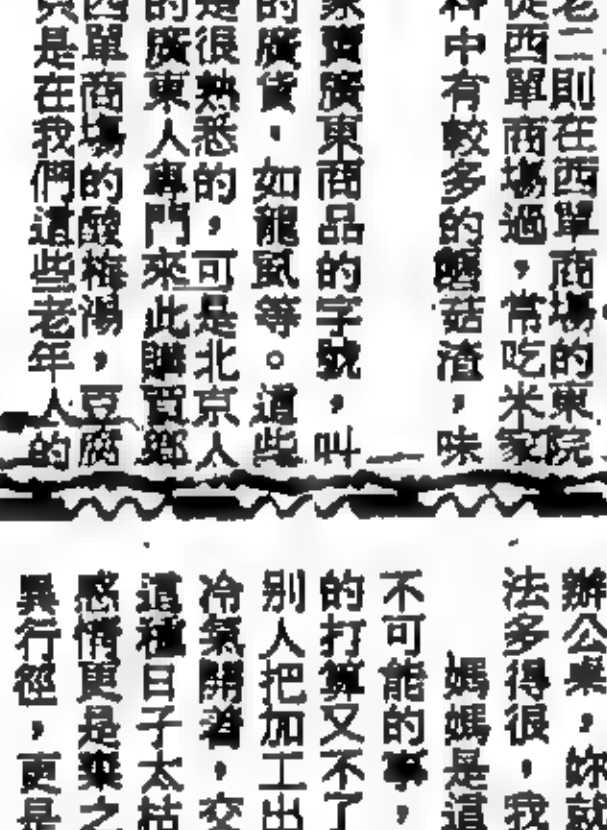 老二則在西單商場的東院
從西單商場過，常吃米家
料中有較多的蘑菇渣，味
家賣廣東商品的字號，叫
的廣貨，如龍虱等。這些
是很熟悉的，可是北京人
的廣東人專門來此購買鄉
西單商場的酸梅湯，豆腐
只是在我們這些老年人的
辦公桌，妳就
法多得很，我
媽媽是這
不可能的事，
的打算又不了
別人把加工出
冷氣開着，交
這種日子太枯
感情更是棄之
異行徑，更是